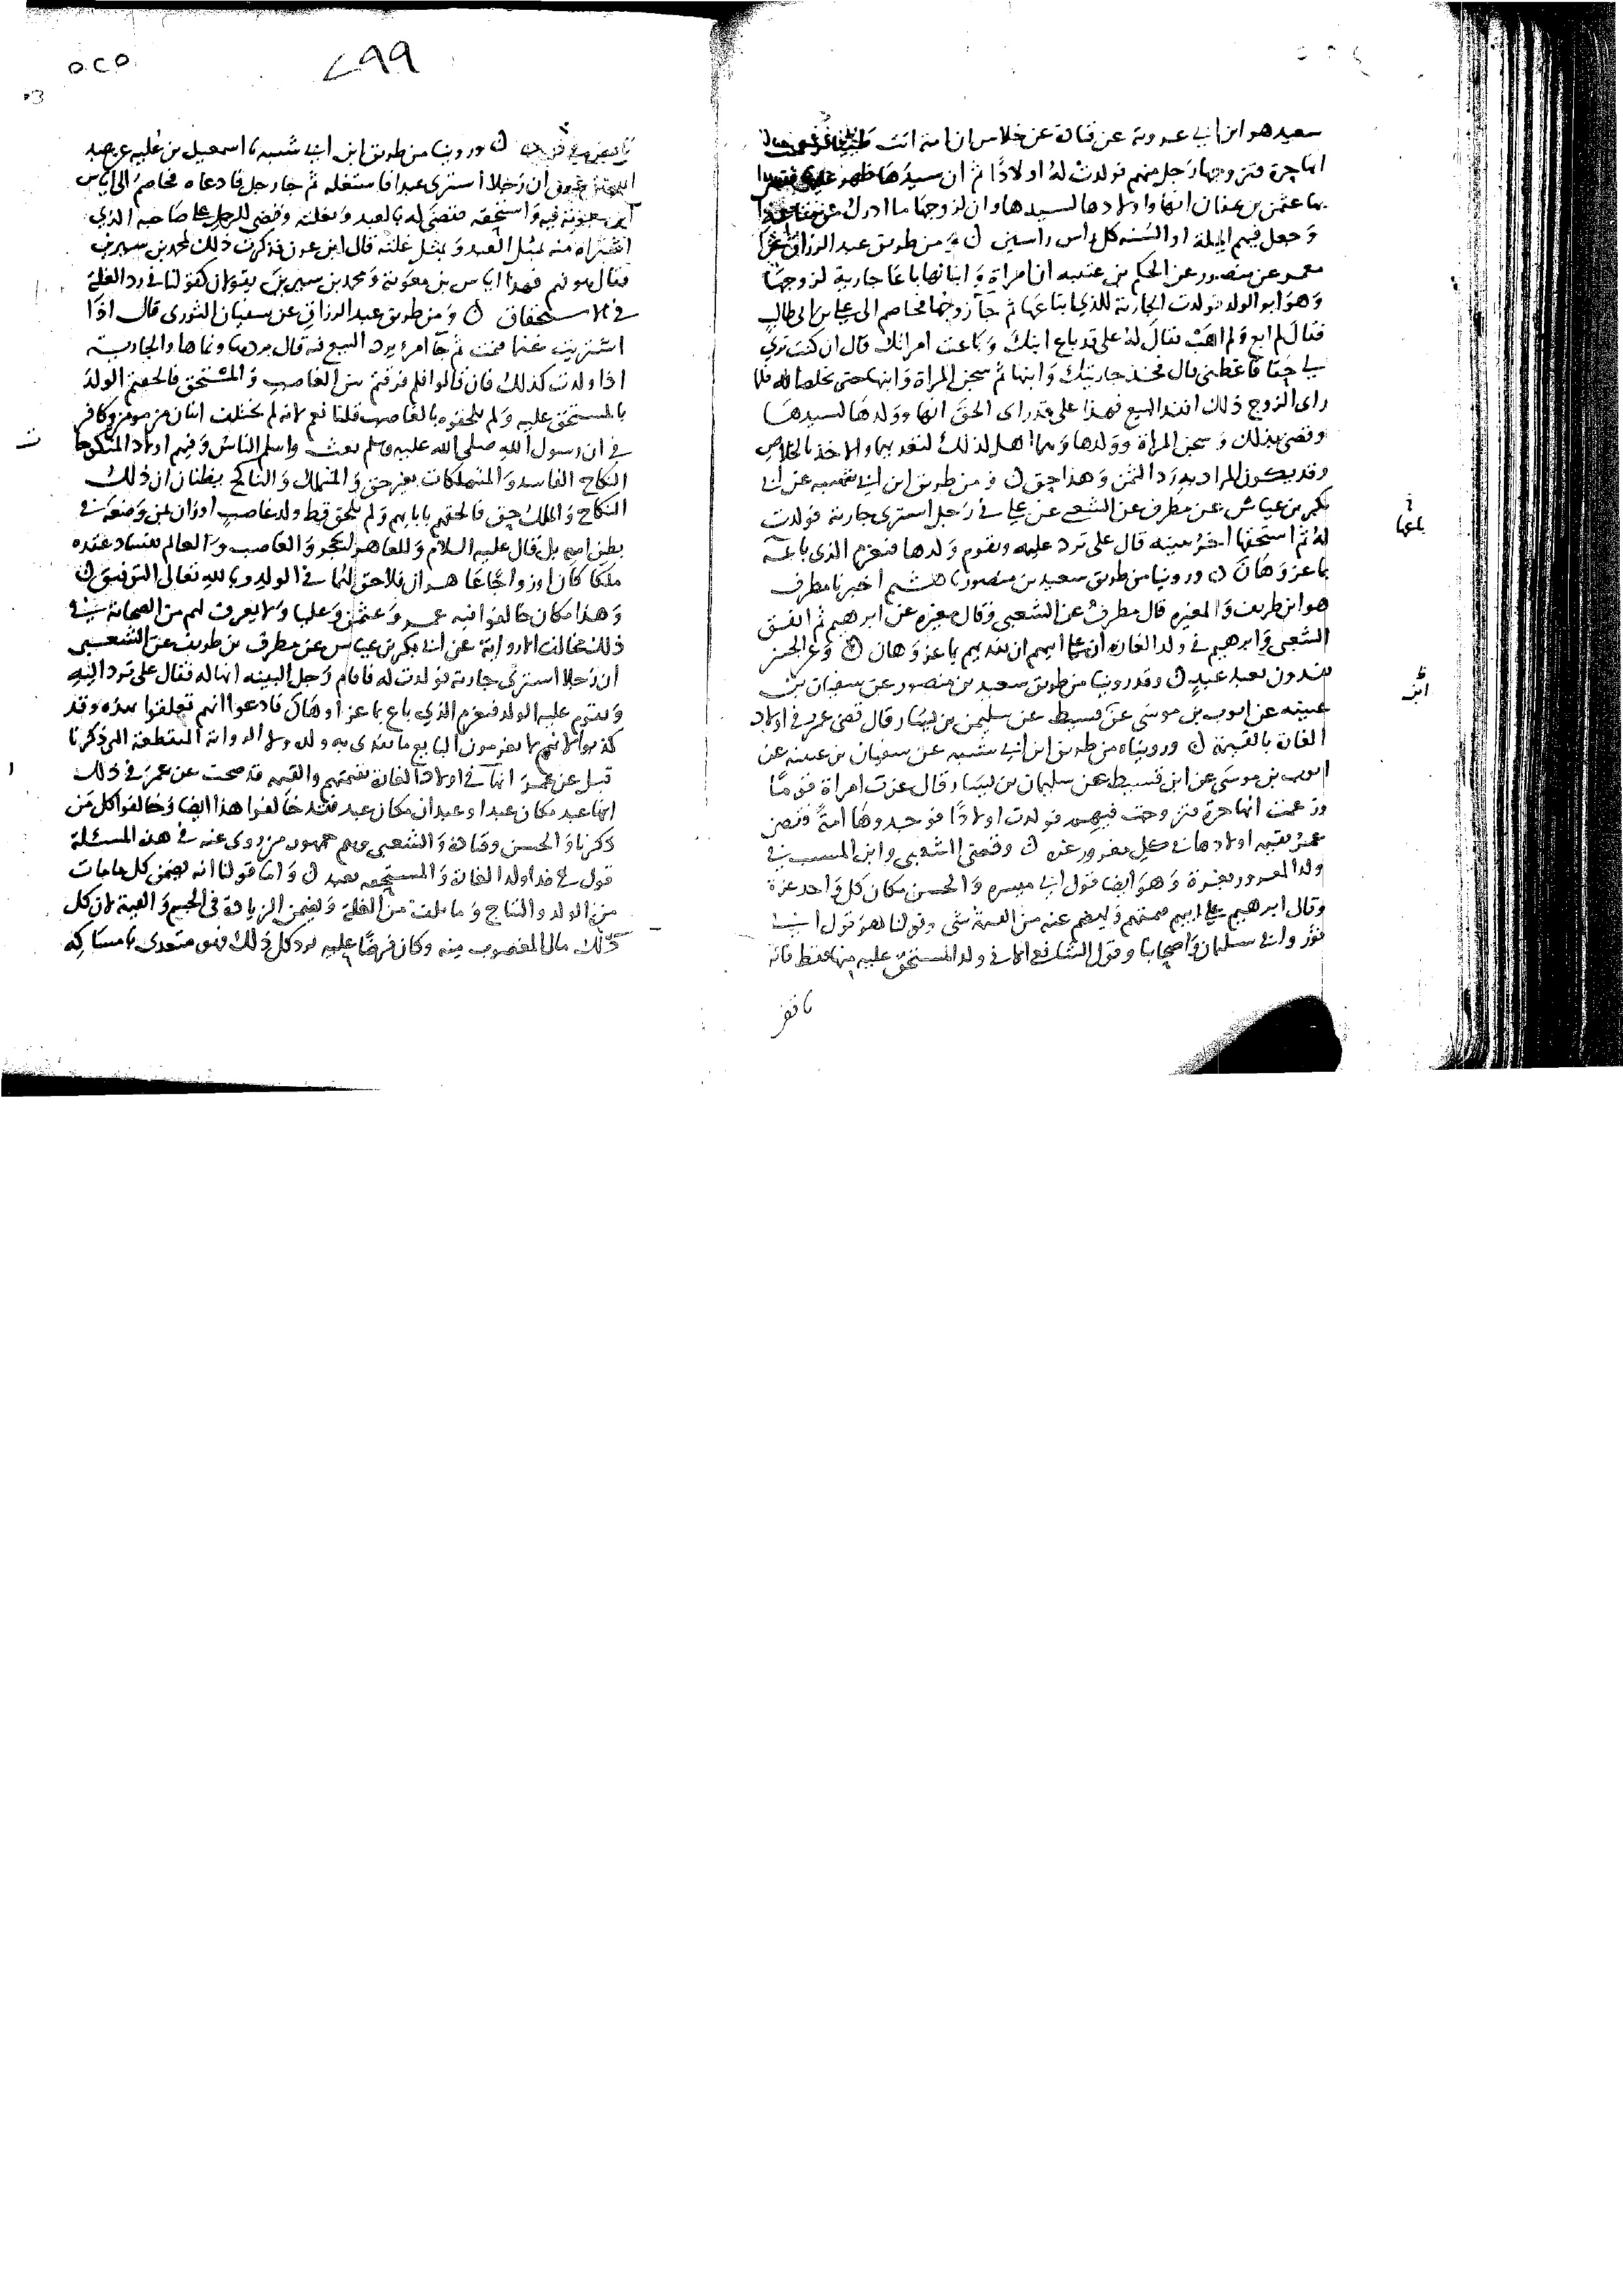 سعيد هو ابن ابي عروبة عن قتادة عن خلاس ان امة اتت
انها حرة فتزوجها رجل منهم فولدت له اولادا ثم ان سيدها ظهر عليها فقضى
بها عثمن بن عفان انها واولادها لسيدها وان لزوجها ما ادرك من متاعه
وجعل فيهم الملة او السنه كل راس راسين ن ومن طريق عبد الرزاق عن
معمر عن منصور عن الحكم بن عتيبه ان امراة وابنا لها باعا جارية لزوجها
وهو ابو الولد فولدت الجارية للذي ابتاعها ثم جآ زوجها فخاصم الى علي بن ابي طالب
فقال لم ابع ولم اهب فقال له علي قد باع ابنك وباعت امراتك قال ان كنت ترى
لي حقا فاعطني قال فخذ جاريتك وابنها ثم سجن المراة وابنها حتى تخلصا له فلما
راى الزوج ذلك انفذ البيع فهذا علي قد راى الحق انها وولدها لسيدها
وقضى بذلك وسجن المراة وولدها وهما اهل لذلك لتعديهما والاخذ بالخلاص
وقد يكون المراد به رد الثمن وهذا حق ن ومن طريق ابن ابي شيبه عن ابي
بكر بن عياش عن مطرف عن الشعبي عن علي في رجل اشترى جارية فولدت
له ثم استحقها اخر ببينه قال علي ترد عليه ويقوم ولدها فيغرم الذي باعه
بما عز وهان ن وروينا من طريق سعيد بن منصور نا هشيم اخبرنا مطرف
هو ابن طريف والمغيره قال مطرف عن الشعبي وقال مغيره عن ابرهيم ثم اتفق
الشعبي وابرهيم في ولد الغارة ان على ابيهم ان يفديهم بما عز وهان ن وعن الحسن
يفدون بعبد عبد ن وقد روينا من طريق سعيد بن منصور عن سفيان بن
عيينه عن ايوب بن موسى عن قسيط عن سليمن بن يسار قال قضى عمر في اولاد
الغارة بالقيمة ن ورويناه من طريق ابن ابي شيبه عن سفيان بن عيينه عن
ايوب بن موسى عن ابن قسيط عن سليمان بن يسار قال غرت امراة قوما
وزعمت انها حرة فتزوجت فيهم فولدت اولادا فوجدوها امة فقضى
عمر بقيمه اولادها في كل مغرور غره ن وقضى الشعبي وابن المسيب في
ولد المغرور بغرة وهو ايضا قول ابي ميسره والحسن مكان كل واحد غرة
وقال ابرهيم على ابيهم قيمتهم ويهضم عنه من القيمة شى وقولنا هو قول ابي
ثور وابي سليمان واصحابنا وقول الشافعي الا في ولد المستحق عليه منها فقط فانه
نا فض
يا
باعها
ظ
ابن
٢٩٩
ن وروينا من طريق ابن ابي شيبه نا اسمعيل بن عليه عن عبد
الله بن عون ان رجلا اشترى عبدا فاستغله ثم جا رجل فادعاه فخاصم الى اياس
ابن معوية فيه واستحقه فقضى له بالعبد وبغلته وقضى للرجل على صاحبه الذي
اشتراه منه بمثل العبد وبمثل غلته قال ابن عون فذكرت ذلك لمحمد بن سيرين
فقال هو فهم فهذا اياس بن معوية ومحمد بن سيرين يقولان كقولنا في رد الغلة
في الاستحقاق ن ومن طريق عبد الرزاق عن سفيان الثوري قال اذا
اشتريت غنما فنمت ثم جآ امر يرد البيع فيه قال يردها ونماها والجارية
اذا ولدت كذلك فان قالوا فلم فرقتم بين الغاصب والمستحق فالحقتم الولد
بالمستحق عليه ولم تلحقوه بالغاصب قلنا نعم لانه لم يختلف اثنان من مومن وكافر
في ان رسول الله صلى الله عليه وسلم بعث واسلم الناس وفيهم اولاد المنكوحات
النكاح الفاسد والمتملكات بغير حق والمتملك والناكح يظنان ان ذلك
النكاح والملك حق فالحقهم بابايهم ولم يلحق قط ولد غاصب او زان بمن وضعه في
بطن امه بل قال عليه السلام وللعاهر الحجر والغاصب والعالم بفساد عقده
ملكا كان او زواجا عاهران فلا حق لهما في الولد وبالله تعالى التوفيق ن
وهذا مكان خالفوا فيه عمر وعثمن وعليا ولا يعرف لهم من الصحابة في
ذلك مخالف الا رواية عن ابي بكر بن عياش عن مطرف بن طريف عن الشعبي
ان رجلا اشترى جارية فولدت له فاقام رجل البينه انها له فقال علي ترد اليه
ويقوم عليه الولد فيغرم الذي باع بما عز او هان فادعوا انهم تعلقوا بهذه وقد
كذبوا لانهم لا يغرمون البايع ما يفدى به ولده ولا الرواية المنقطعة التي ذكرنا
قبل عن عمر انها في اولاد الغارة بقيمتهم والقيمه قد صحت عن عمر في ذلك
انها عبد مكان عبد او عبدان مكان عبد فقد خالفوا هذا ايضا وخالفوا كل من
ذكرنا والحسن وقتادة والشعبي وهم جمهور من روى عنه في هذه المسئلة
قول في فدا ولد الغارة والمستحقه بعبد ن واما قولنا انه يضمن كل ما مات
من الولد والنتاج وما تلف من الغلة ويضمن الزيادة في الجسم والقيمة لان كل
ذلك مال المغصوب منه وكان فرضا عليه رد كل ذلك فهو متعدى بامساكه